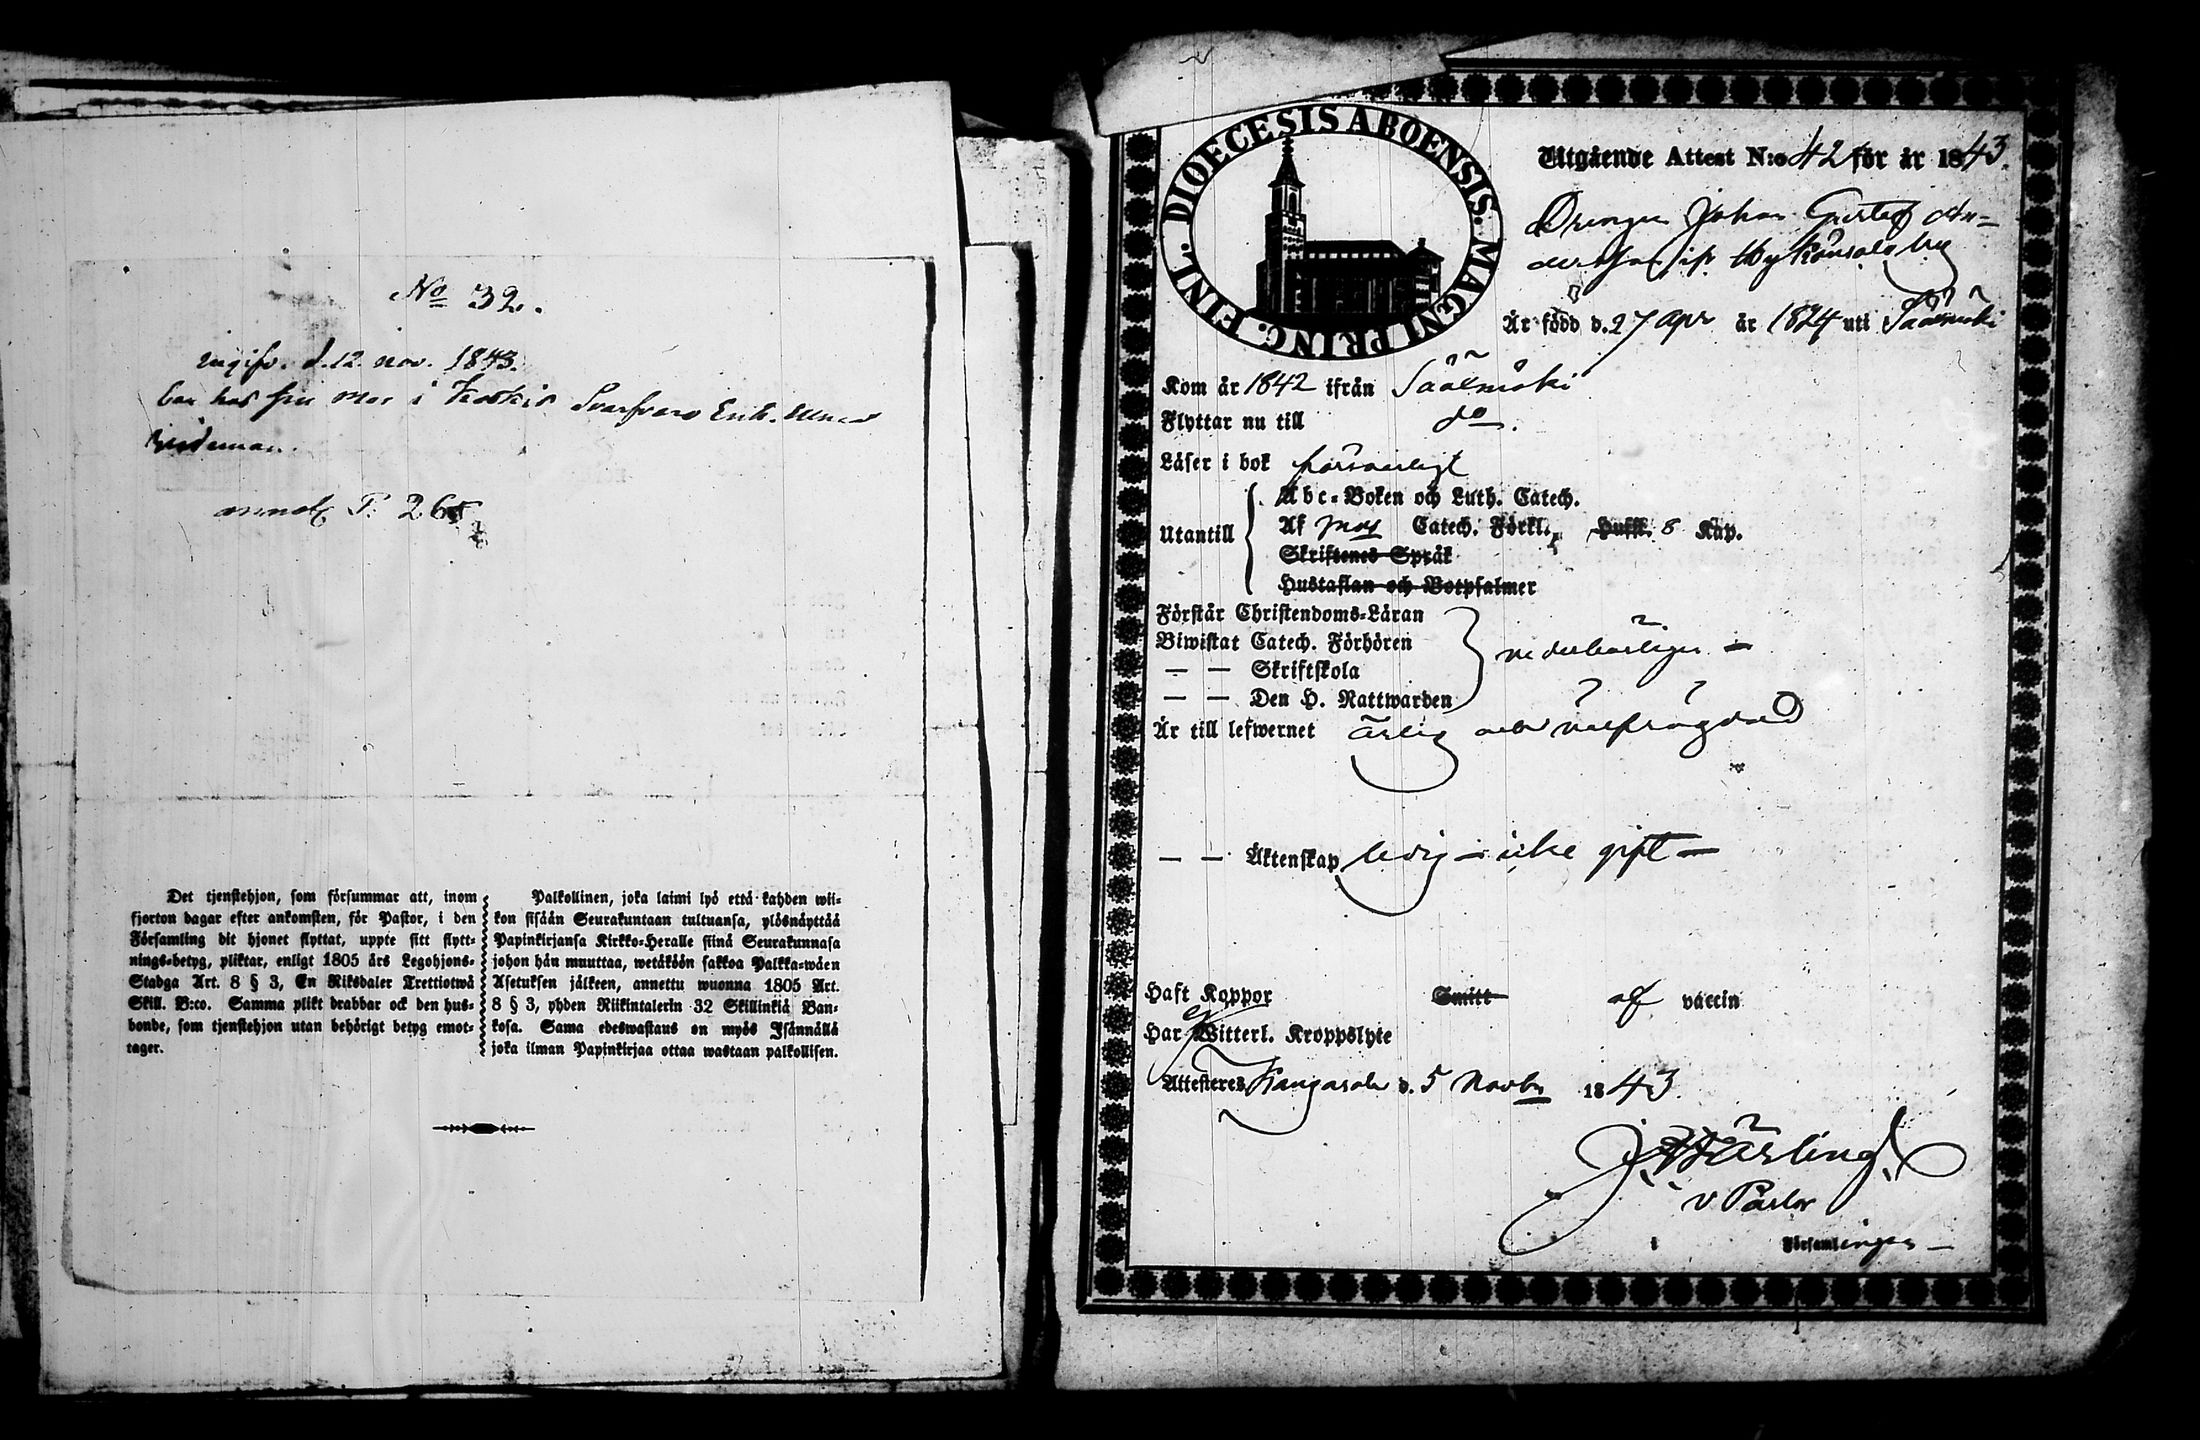 No 32.
ingifv. d. 12. nov. 1843.
bor hos sin Mor i Koskis Svarfvars Enk. Anna
annot P. 265
Det tjenstehjon, som försummar att, inom
fjorton dagar efter ankomsten, för Pastor, i den
Församling dit hjonet flyttat, uppte sitt flytt-
nings-betyg, pliktar, enligt 1805 års Legohjons-
Stadga Art. 8 § 3, En Riksdaler Trettiotwå
Skill. B:co. Samma plikt drabbar ock den hus-
bonde, som tjenstehjon utan behörigt betyg emot-
tager.
Palkollinen, joka laimi lyö että kahden wii-
kon sisään Seurakuntaan tultuansa, ylösnäyttää
Papinkirjansa Kirkko-Heralle siinä Seurakunnasa
johon hän muuttaa, wetäköön sakkoa Palkka-wäen
Asetuksen jälkeen, annettu wuonna 1805 Art.
8 § 3, yhden Riikintalerin 32 Skillinkiä Ban-
kosa. Sama edeswastaus on myös Isännällä
joka ilman Papinkirjaa ottaa wastaan palkollisen.
DIOECESIS ABOENSIS. MAGNI PRINC. FINL.
Utgående Attest N:o 42 för år 1843.
Drengen Johan Gustaf An-
dersson ifr
Är född d. 27 Apr år 1824 uti Sääxmäki
Kom år 1842 ifrån Sääxmäki
Flyttar nu till do.
Läser i bok försvarligt
Utantill
Abc-Boken och Luth. Catech.
Af Catech. Förkl. Hufft. 8 Kap.
Skriftenes Språk
Hustaflan och Botpsalmer
Förstår Christendoms-Läran
Biwistat Catech. Förhören
— — Skriftskola
— — Den H. Nattwarden
vederbörligen —
Är till lefwernet ärlig och välfrägdad
— — Äktenskap ledig — icke gift —
Haft Koppor Smitt af vaccin
Har ej Witterl. Kroppslyte
Attesteras Kangasala d. 5 Novbr 1843.
v Pastor
i Församlingen —